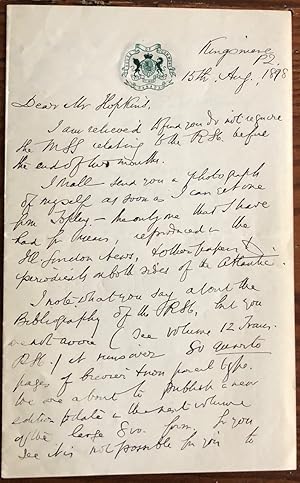 Kingsmere
P2.
15th Aug, 1898
Dear Mr Hopkins.
I am relieved to find you do not require
the MSS relating to the RSC. before
the end of two months.
I shall send you a photograph
of myself as soon as I can get one
from Topley — the only one that I have
had for years, reproduced in the
Ill London News, & other papers &
periodicals on both sides of the Atlantic.
I note what you say about the
Bibliography of the RSC, but you
are not aware (see volume 12 Trans.
RSC.) it runs over 80 quarto
pages of brevier & nonpareil type.
We are about to publish a new
edition to date in the next volume
of the large 8vo. form. So you
see it is not possible for you to